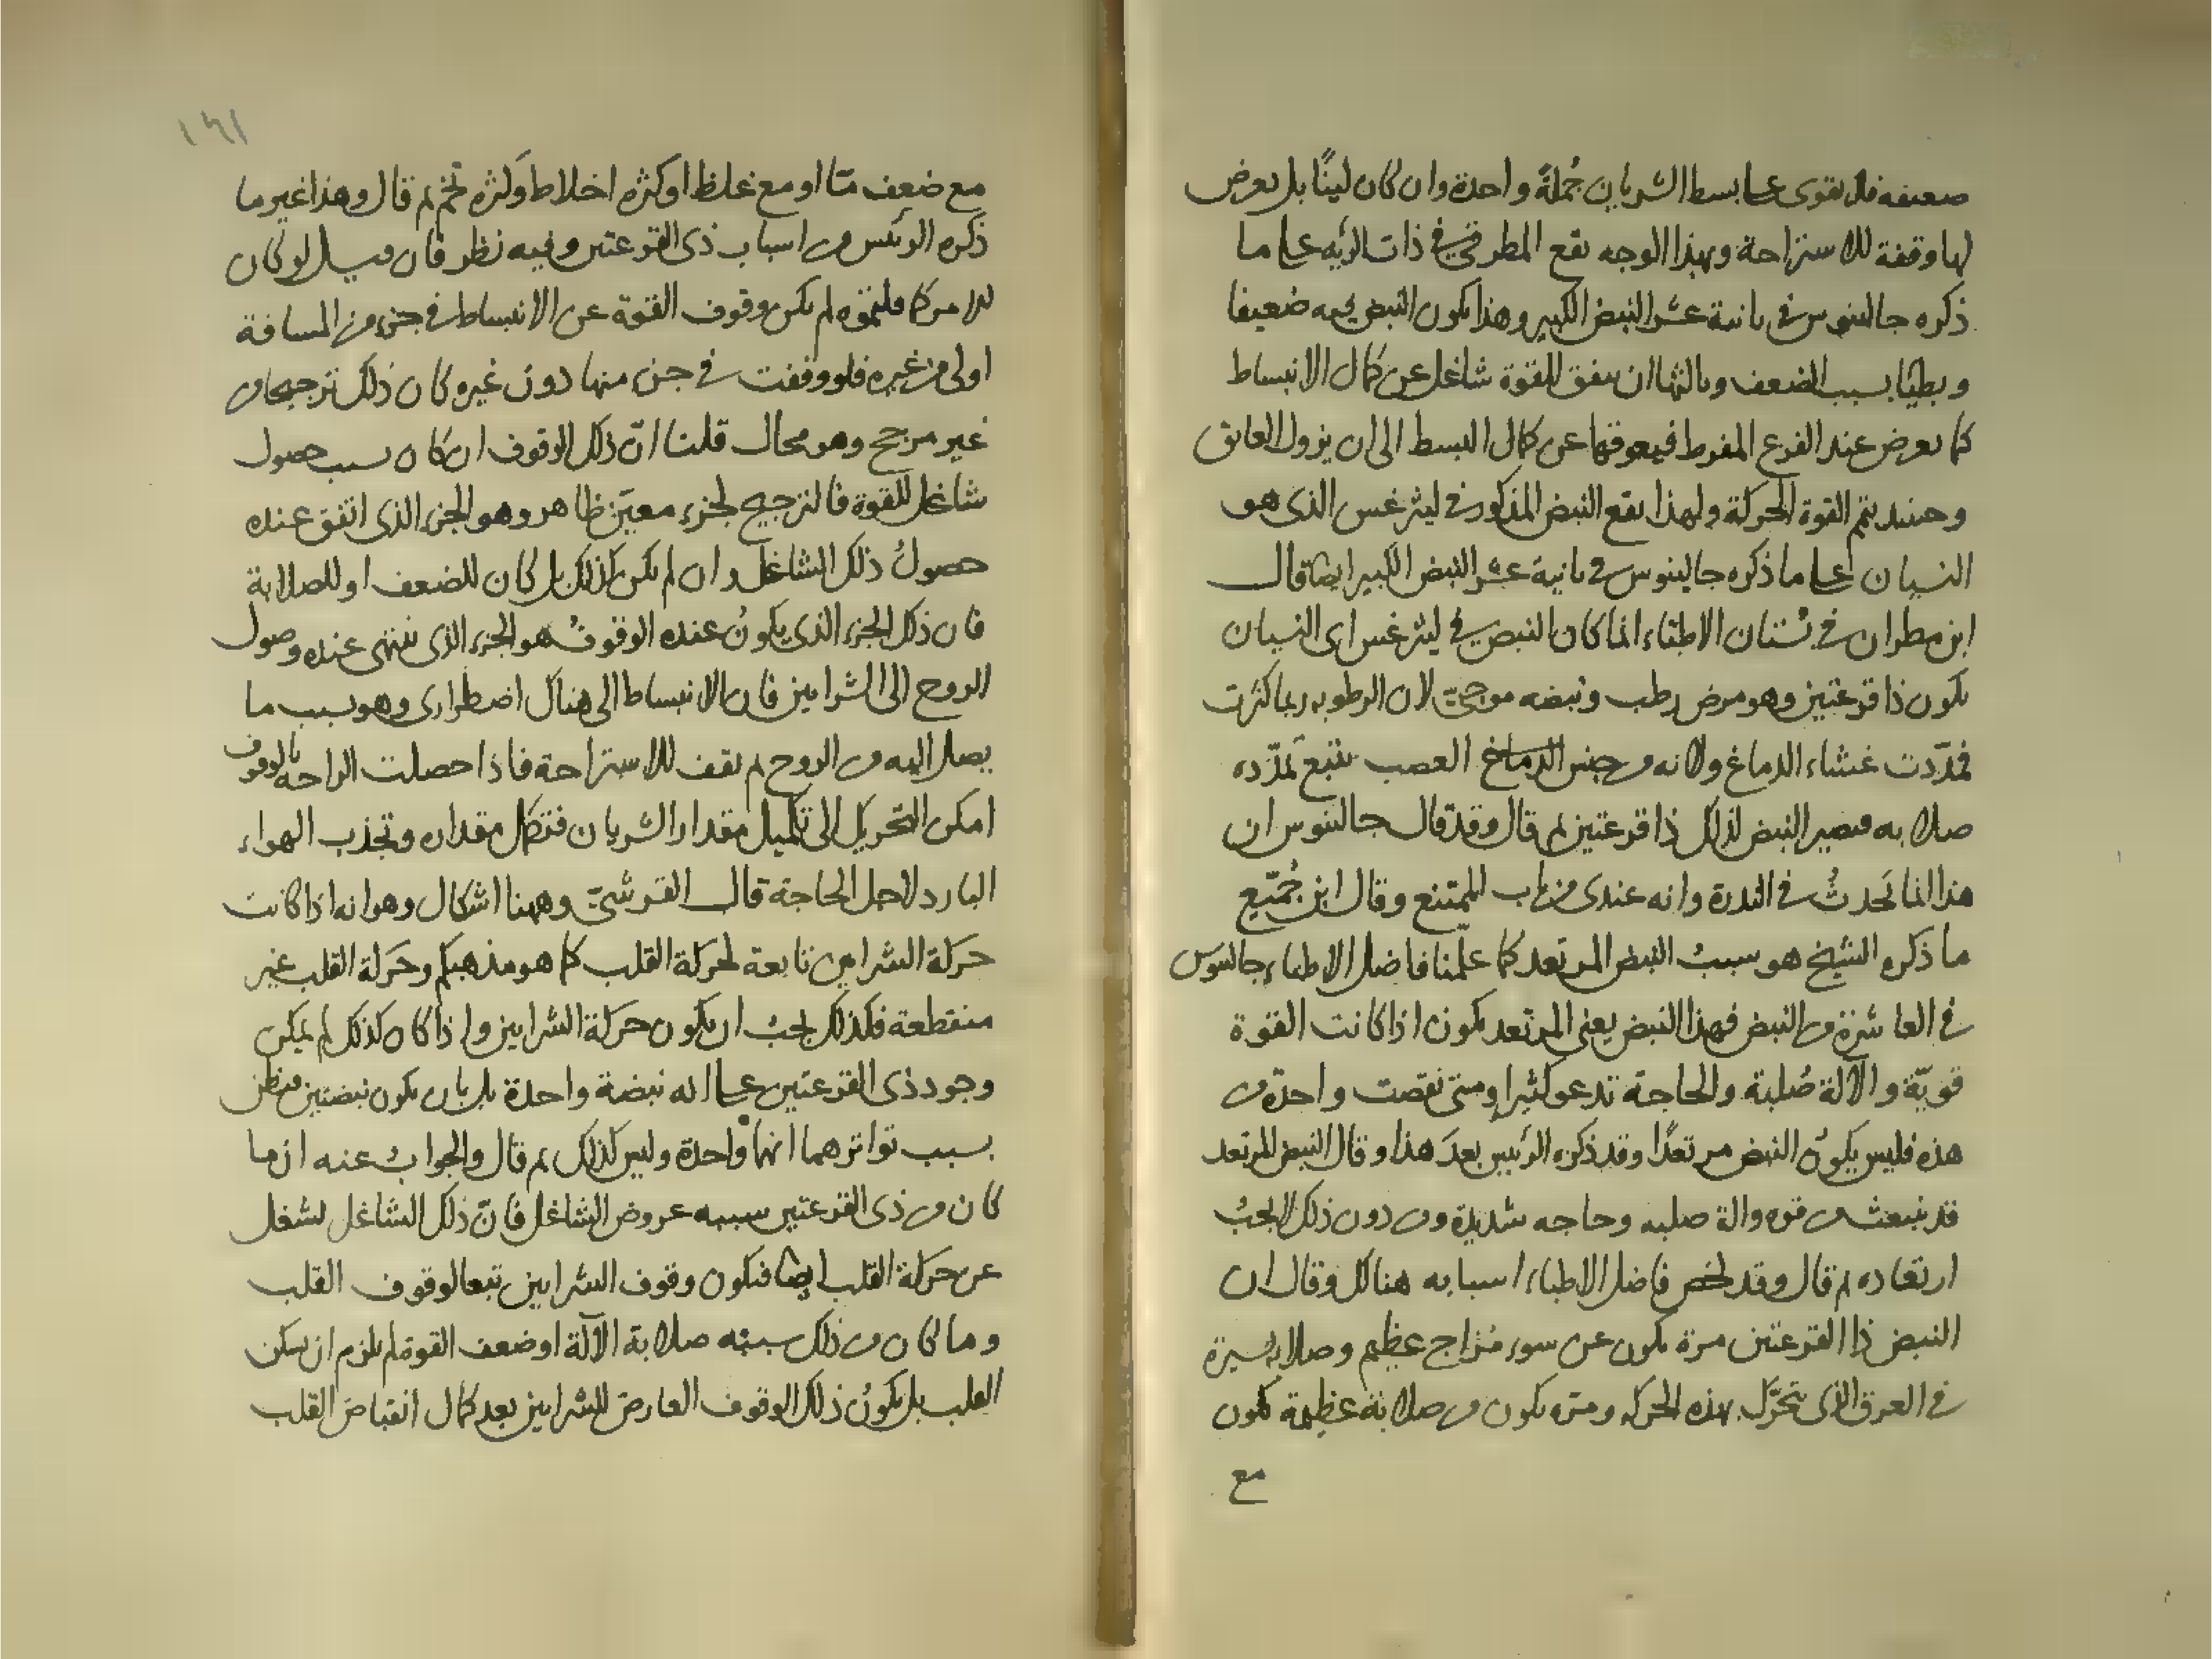 ضعيفه فلا تقوى على بسط الشريان جُملةً واحدة وان كان لينًا بل يعرض
لها وقفة للاستراحة وبهذا الوجه يقع المطرقى فى ذات الريه على ما
ذكره جالينوس فى ثانية عشر النبض الكبير وهذا يكون النبض فيه ضعيفا
وبطيًا بسبب الضعف وثالثها ان يتفق للقوة شاغل عن كمال الانبساط
كما يعرض عند الفزع المفرط فيعوقها عن كمال البسط الى ان يزول العايق
وحينيذ يتم القوة الحركة ولهذا يقع النبض المذكور فى ليثرغس الذى هو
النسيان على ما ذكره جالينوس فى ثانية عشر النبض الكبير ايضا قال
ابن مطران فى بُستان الاطباء انما كان النبض فى ليثرغس اى النسيان
يكون ذا قرعتين وهو مرض رطب ونبضه موجىّ لان الرطوبه ربما كثرت
فمدّدت غشاء الدماغ ولانه من جنس الدماغ العصب يتبع تمدّده
صلابه فيصير النبض لذلك ذا قرعتين ثم قال وقد قال جالينوس ان
هذا انما يَحدثُ فى الندرة وانه عندى من باب الممتنع وقال ابن جُمَيّع
ما ذكره الشيخ هو سببُ النبض المرتعد كما علّمنا فاضل الاطباء جالينوس
فى العاشرة من النبض فهذا النبض يعنى المرتعد يكون اذا كانت القوة
قويّة والآلة صُلبة والحاجة تدعو كثيرا ومتى نقصت واحدة من
هذه فليس يكونُ النبض مرتعدًا وقد ذكره الرئيس بعدَ هذا وقال النبض المرتعد
قد ينبعث من قوه والة صلبه وحاجه شديدة ومن دون ذلك لا يجبُ
ارتعاده ثم قال وقد لخص فاضل الاطباء اسبابه هنالك وقال ان
النبض ذا القرعتين مرة يكون عن سوء مزاج عظيم وصلابه يسيرة
فى العرق الذى يتحرّك بهذه الحركه ومره يكون من صلابة عظيمة تكون
مع
١٦١
مع ضعف مّا او مع غلظ او كثره اخلاط وكثره تخم ثم قال وهذا غير ما
ذكره الرئيس من اسباب ذى القرعتين وفيه نظر فان قيل لو كان
الامر كما قلتموه لم يكن وقوف القوة عن الانبساط فى جزء من المسافة
اولى من غيره فلو وقفت فى جزء منها دون غيره كان ذلك ترجيحا من
غير مرجح وهو محال قلنا انّ ذلك الوقوف ان كان بسبب حصول
شاغل للقوة فالترجيح لجزء معيّن ظاهر وهو الجزء الذى اتفق عنده
حصولُ ذلك الشاغل وان لم يكن كذلك بل كان للضعف او للصلابة
فان ذلك الجزء الذى يكونُ عنده الوقوفُ هو الجزء الذى ينتهى عنده وصول
الروح الى الشرايين فان الانبساط الى هناك اضطرارى وهو بسبب ما
يصل اليه من الروح ثم تقف للاستراحة فاذا حصلت الراحه بالوقوف
امكن التحريك الى تكميل مقدار الشريان فتكمل مقداره وتجذب الهواء
البارد لاجل الحاجة قال القرشىّ وههنا اشكال وهو انه اذا كانت
حركة الشرايين تابعة لحركة القلب كما هو مذهبكم وحَركة القلب غير
منقطعة فكذلك يجبُ ان يكون حركة الشرايين واذا كان كذلك لم يمكن
وجود ذى القرعتين على انه نبضة واحدة بل بان يكون نبضتين فيظن
بسبب تواترهما انهما واحدة وليس كذلك ثم قال والجوابُ عنه ان ما
كان من ذى القرعتين سببه عروض الشاغل فانّ ذلك الشاغل يشغل
عن حركة القلب ايضا فيكون وقوف الشرايين تبعا لوقوف القلب
وما كان من ذلك سببُه صلابة الآلة او ضعف القوة لم يلزم ان يسكن
القلب بل يكونُ ذلك الوقوف العارض للشرايين بعد كمال انقباض القلب